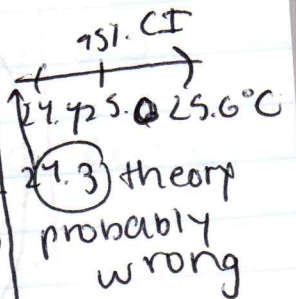 95%. CI
24.4 25.0 25.6°C
24.3 theory
probably
wrong